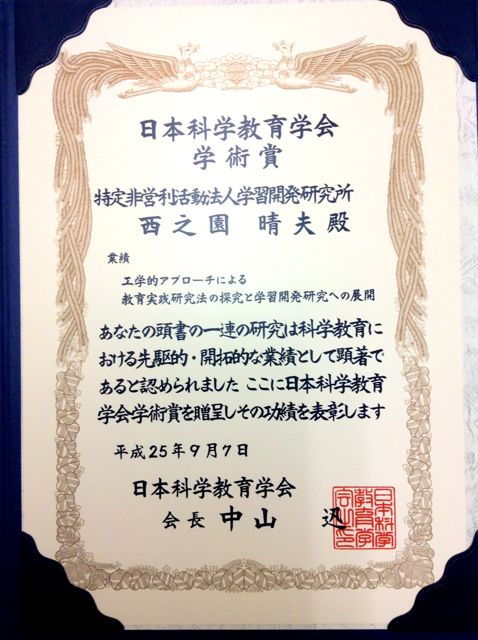 日本科学教育学会
学術賞
特定非営利活動法人学習開発研究所
西之園 晴夫 殿
業績
工学的アプローチによる
教育実践研究法の探究と学習開発研究への展開
あなたの頭書の一連の研究は科学教育に
おける先駆的・開拓的な業績として顕著で
あると認められました ここに日本科学教育
学会学術賞を贈呈しその功績を表彰します
平成25年9月7日
日本科学教育学会
会長 中山 迅
日本科学
教育学
会之印